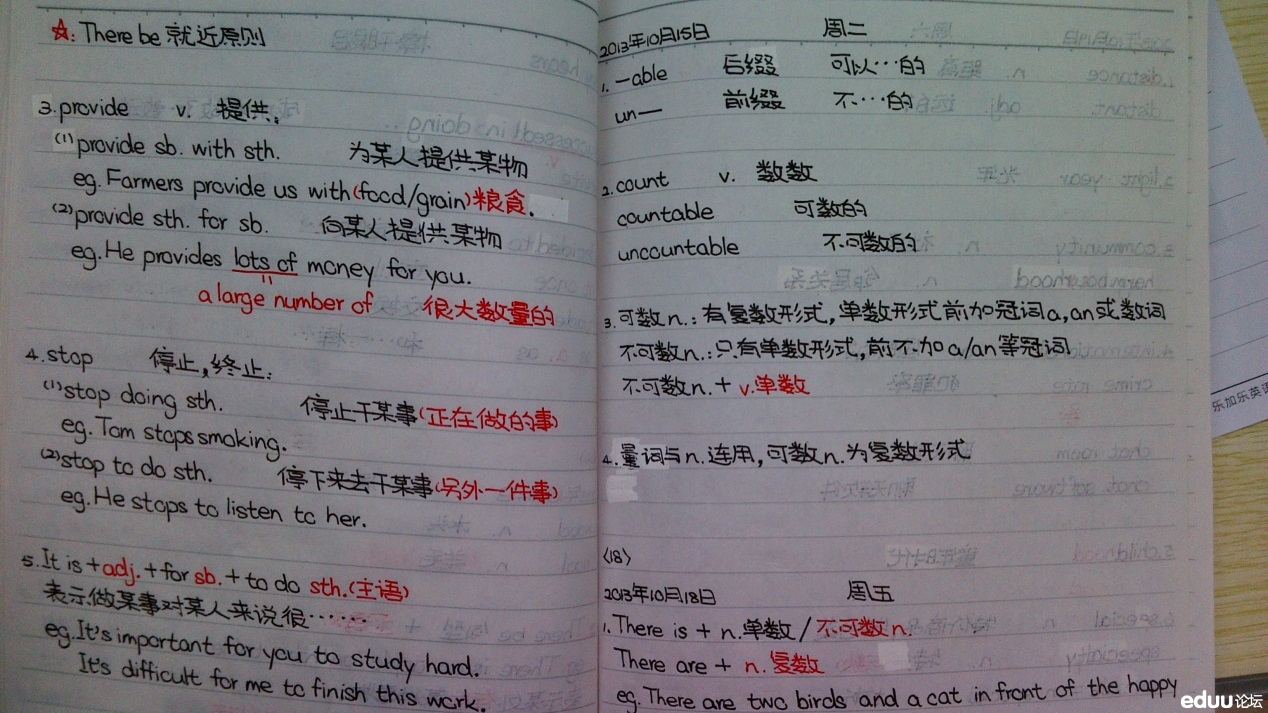 ☆: There be 就近原则
3. provide v. 提供:
(1) provide sb. with sth. 为某人提供某物
eg. Farmers provide us with (food/grain) 粮食.
(2) provide sth. for sb. 向某人提供某物
eg. He provides lots of money for you.
a large number of 很大数量的
4. stop 停止,终止:
(1) stop doing sth. 停止干某事(正在做的事)
eg. Tom stops smoking.
(2) stop to do sth. 停下来去干某事(另外一件事)
eg. He stops to listen to her.
5. It is + adj. + for sb. + to do sth. (主语)
表示做某事对某人来说很……
eg. It's important for you to study hard.
It's difficult for me to finish this work.
2013年10月15日 周二
1. —able 后缀 可以…的
un— 前缀 不…的
2. count v. 数数
countable 可数的
uncountable 不可数的
3. 可数n.: 有复数形式,单数形式前加冠词a,an或数词
不可数n.: 只有单数形式,前不加a/an等冠词
不可数n. + v.单数
4. 量词与n.连用,可数n.为复数形式
<18>
2013年10月18日 周五
1. There is + n.单数 / 不可数n.
There are + n.复数
eg. There are two birds and a cat in front of the happy
乐加乐英语
eduu论坛